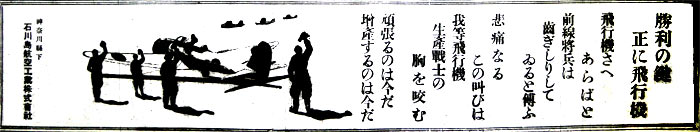 勝利の鍵
正に飛行機
飛行機さへ
あらばと
前線將兵は
齒ぎしりして
ゐると傳ふ
悲痛なる
この叫びは
我等飛行機
生産戰士の
胸を咬む
頑張るのは今だ
增產するのは今だ
神奈川縣下
石川島航空工業株式會社